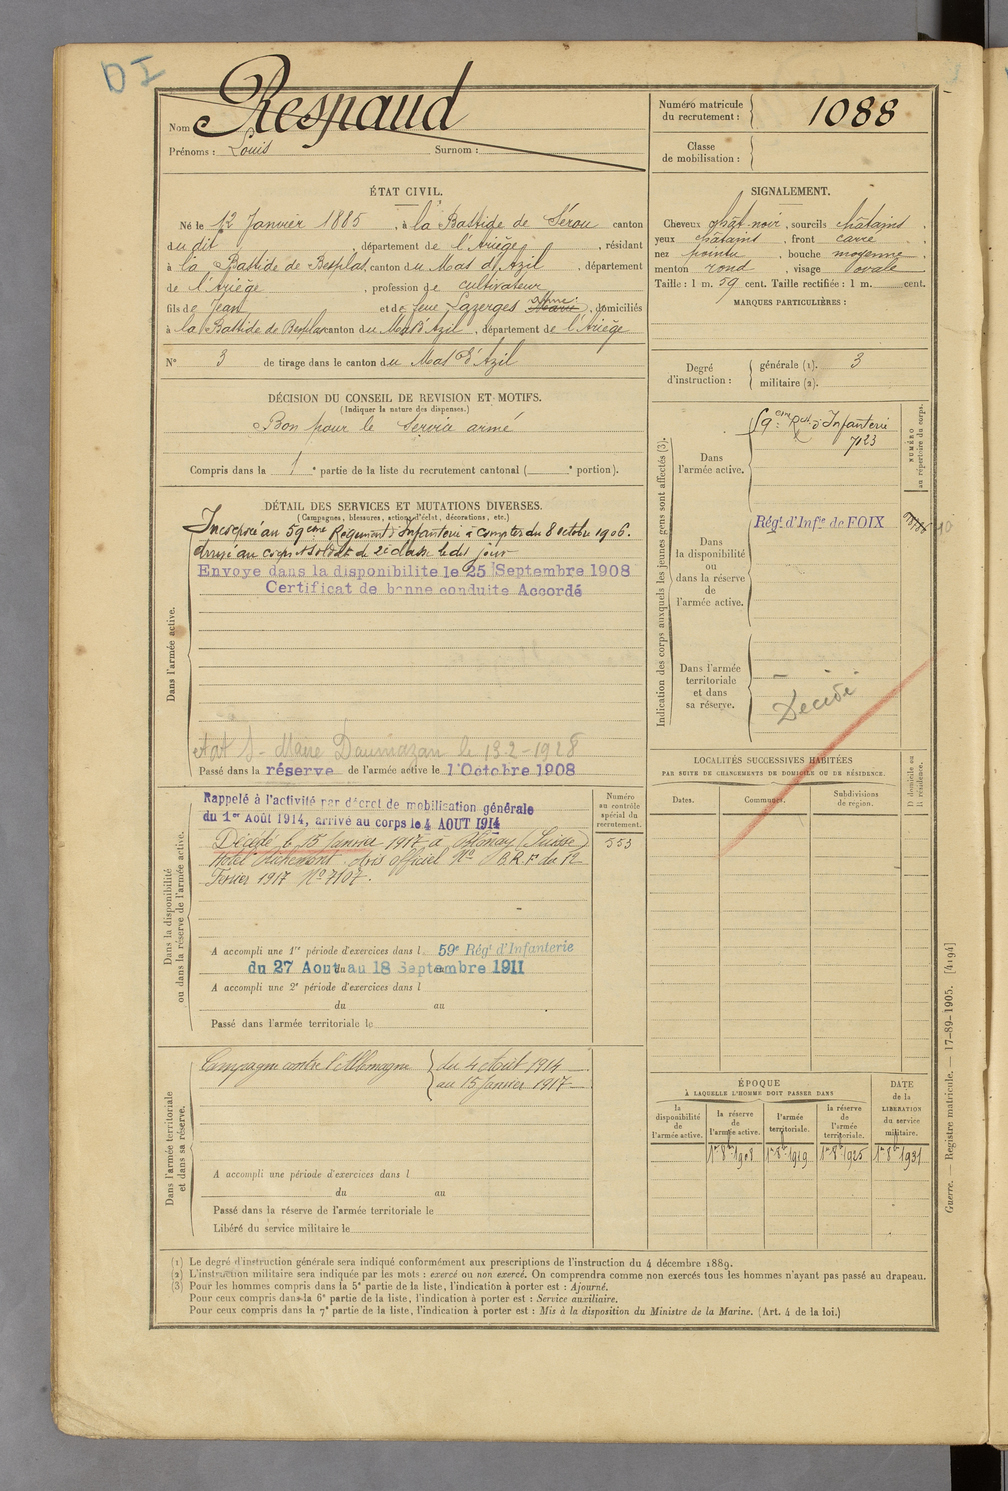 DI
Nom Respaud
Prénoms : Louis Surnom :
Numéro matricule
du recrutement : 1088
Classe
de mobilisation :
ÉTAT CIVIL.
Né le 12 Janvier 1885, à la Bastide de Sérou canton
du dit, département de l'Ariège, résidant
à la Bastide de Besplas, canton du Mas d'Azil, département
de l'Ariège, profession de cultivateur
fils de Jean et de feue Lazerges, domiciliés
à la Bastide de Besplas canton du Mas d'Azil, département de l'Ariège
N° 3 de tirage dans le canton du Mas d'Azil
SIGNALEMENT.
Cheveux chât-noir, sourcils châtains,
yeux châtains, front carré
nez pointu, bouche moyenne,
menton rond, visage ovale
Taille : 1 m. 59 cent. Taille rectifiée : 1 m. cent.
MARQUES PARTICULIÈRES :
Degré
d'instruction :
générale (1). 3
militaire (2).
DÉCISION DU CONSEIL DE REVISION ET MOTIFS.
(Indiquer la nature des dispenses.)
Bon pour le Service armé
Compris dans la 1e partie de la liste du recrutement cantonal ( e portion).
DÉTAIL DES SERVICES ET MUTATIONS DIVERSES.
(Campagnes, blessures, actions d'éclat, décorations, etc.)
Dans l'armée active.
Incorporé au 59ème Régiment d'Infanterie à compter du 8 octobre 1906.
Arrivé au corps et soldat de 2e classe le dit jour
Envoye dans la disponibilite le 25 Septembre 1908
Certificat de bonne conduite Accordé
Maire Daumazan le 13-2-1928
Passé dans la réserve de l'armée active le 1 Octobre 1908
Indication des corps auxquels les jeunes gens sont affectés (3).
NUMÉRO
au répertoire du corps.
Dans
l'armée active.
59ème Rgt d'Infanterie
7123
Dans
la disponibilité
ou
dans la réserve
de
l'armée active.
Régt d'Infie de FOIX
Dans l'armée
territoriale
et dans
sa réserve.
Décédé
LOCALITÉS SUCCESSIVES HABITÉES
PAR SUITE DE CHANGEMENTS DE DOMICILE OU DE RÉSIDENCE.
Dates. Communes. Subdivisions
de region.
D domicile ou
R résidence.
Dans la disponibilité
ou dans la réserve de l'armée active.
Numéro
au contrôle
spécial du
recrutement.
553
Rappelé à l'activité par décret de mobilisation générale
du 1er Août 1914, arrivé au corps le 4 AOUT 1914
Décédé le 15 Janvier 1917 à Blonay (Suisse)
Hotel Richemont avis officiel N° B.R.F. du 12
Février 1917 N° 7107.
A accompli une 1re période d'exercices dans l. 59e Régt d'Infanterie
du 27 Aout au 18 Septembre 1911
A accompli une 2e période d'exercices dans l
du au
Passé dans l'armée territoriale le
Dans l'armée territoriale
et dans sa réserve.
Campagne contre l'Allemagne du 4 Août 1914
au 15 Janvier 1917
A accompli une période d'exercices dans l
du au
Passé dans la réserve de l'armée territoriale le
Libéré du service militaire le
ÉPOQUE
À LAQUELLE L'HOMME DOIT PASSER DANS
la
disponibilité
de
l'armée active.
la réserve
de
l'armée active.
l'armée
territoriale.
la réserve
de
l'armée
territoriale.
DATE
de la
LIBÉRATION
du service
militaire.
1er 8bre 1908 1er 8bre 1919 1er 8bre 1925 1er 8bre 1931
(1) Le degré d'instruction générale sera indiqué conformément aux prescriptions de l'instruction du 4 décembre 1889.
(2) L'instruction militaire sera indiquée par les mots : exercé ou non exercé. On comprendra comme non exercés tous les hommes n'ayant pas passé au drapeau.
(3) Pour les hommes compris dans la 5e partie de la liste, l'indication à porter est : Ajourné.
Pour ceux compris dans la 6e partie de la liste, l'indication à porter est : Service auxiliaire.
Pour ceux compris dans la 7e partie de la liste, l'indication à porter est : Mis à la disposition du Ministre de la Marine. (Art. 4 de la loi.)
Guerre. — Registre matricule. — 17-89-1905. [4194]